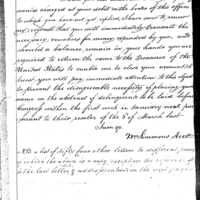 names charged of your debit on the books of this office
to which you have not yet replied, I have now to renew
my request that you will immediately transmit the
necessary vouchers for money expended by you, and
should a balance remain in your hands you are
required to return the same to the Treasurer of the
United States to enable me to close your account, I
you will pay immediate attention to this
to prevent the disagreeable necessity of placing your
name on the abstract of delinquents to be laid before
Congress within the first week in January next pur-
suant to third section of the 3d of March last
I am &c
Wm Simmons Acct
N.B. a list of
of which the above is a copy,
of the last letter & addressed on the next page